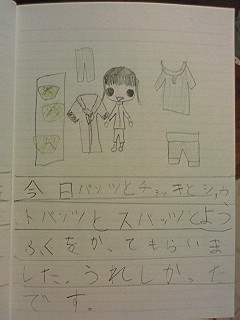 今日パンツとチョッキとショウ
トパンツとスパッツとよう
ふくをかってもらいま
した。うれしかった
です。